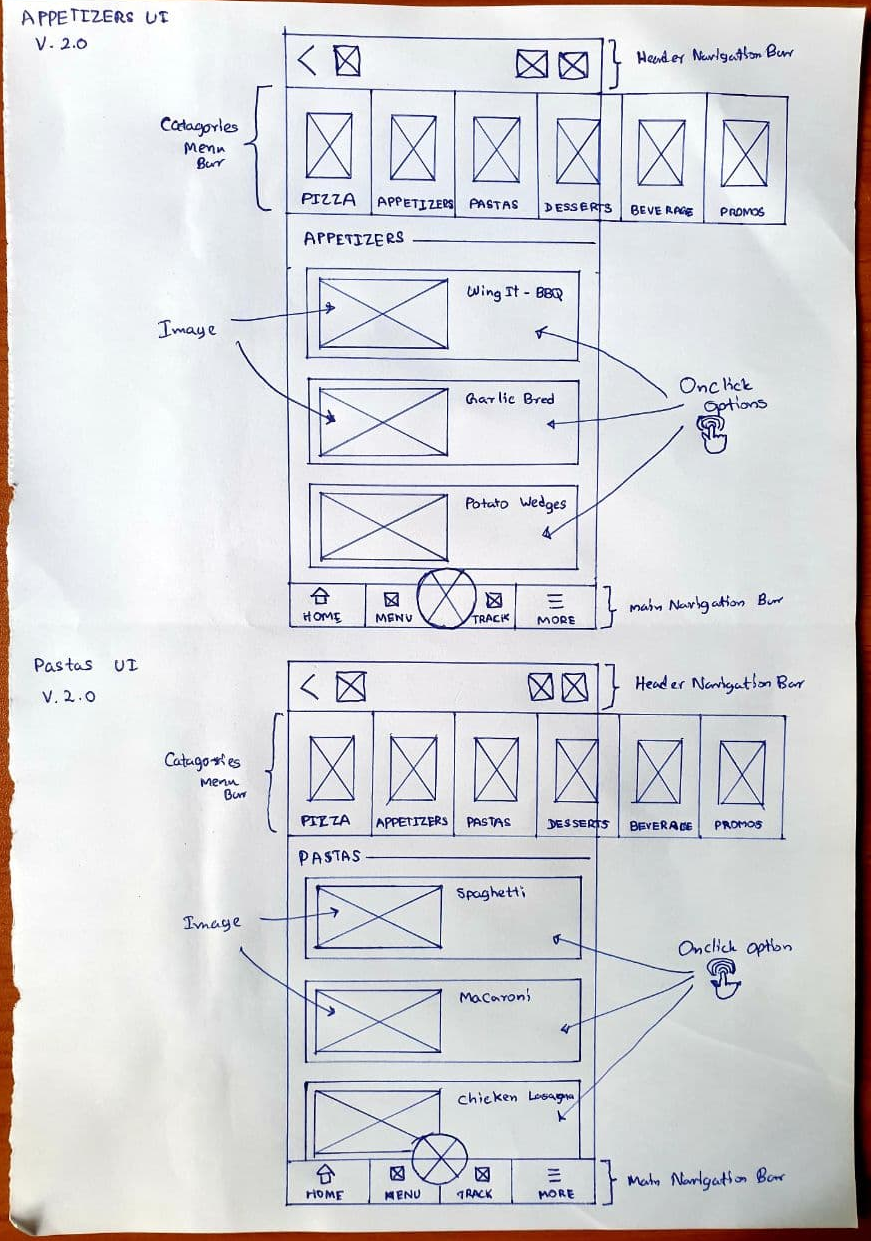 APPETIZERS UI
V. 2.0
Header Navigation Bar
Catagories
Menu
Bar
PIZZA
APPETIZERS
PASTAS
DESSERTS
BEVERAGE
PROMOS
APPETIZERS
Wing It - BBQ
Image
Garlic Bred
Onclick
options
Potato Wedges
HOME
MENU
TRACK
MORE
main Navigation Bar
Pastas UI
V. 2.0
Header Navigation Bar
Catagories
Menu
Bar
PIZZA
APPETIZERS
PASTAS
DESSERTS
BEVERAGE
PROMOS
PASTAS
Spaghetti
Image
Onclick option
Macaroni
chicken Lasagna
HOME
MENU
TRACK
MORE
Main Navigation Bar